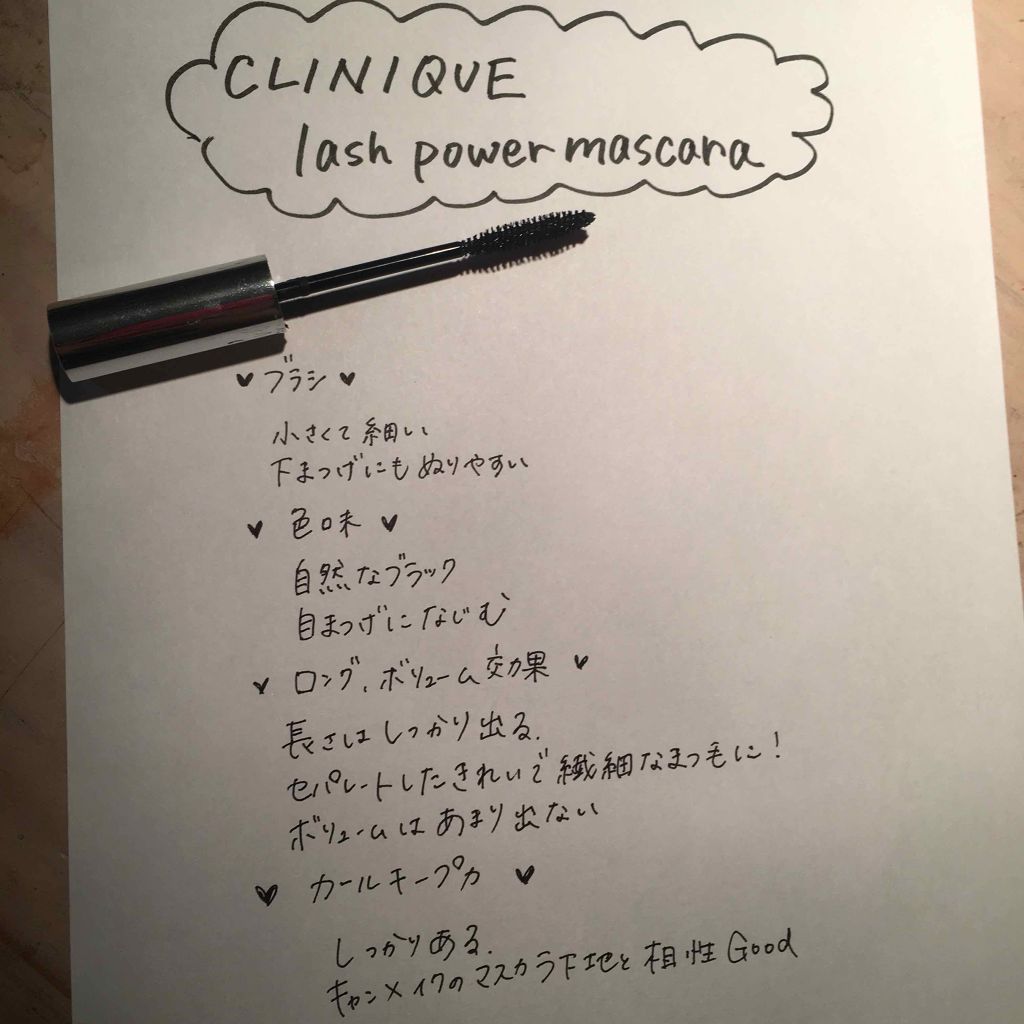 CLINIQUE
lash power mascara
♥ ブラシ ♥
小さくて細い
下まつげにもぬりやすい
♥ 色味 ♥
自然なブラック
自まつげになじむ
♥ ロング、ボリューム効果 ♥
長さはしっかり出る.
セパレートしたきれいで繊細なまつ毛に!
ボリュームはあまり出ない
♥ カールキープ力 ♥
しっかりある.
キャンメイクのマスカラ下地と相性Good